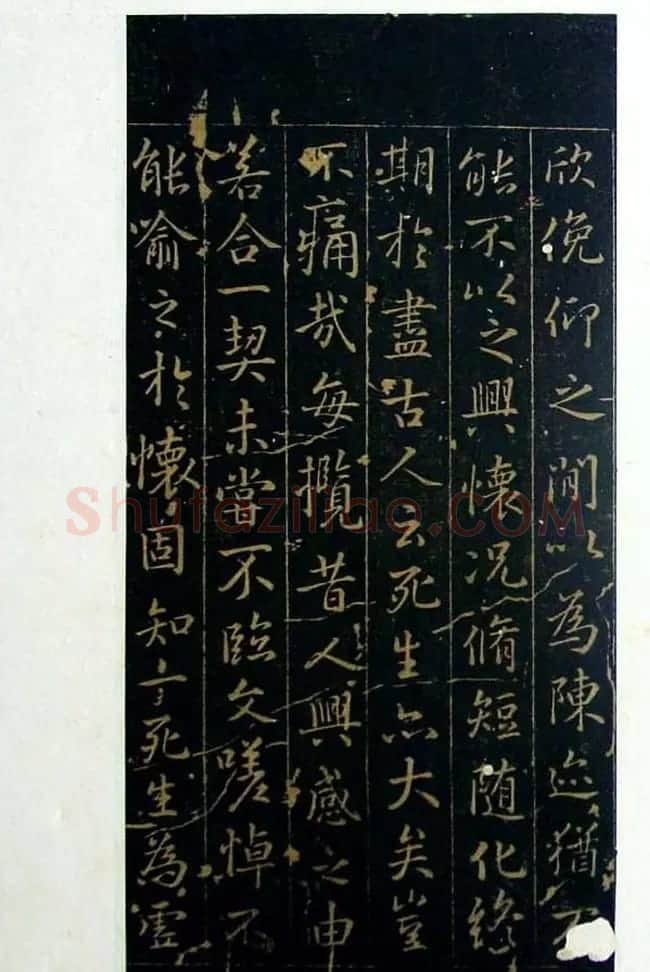 欣俛仰之間以為陳迹猶不
能不以之興懷况脩短随化終
期於盡古人云死生亦大矣豈
不痛哉每攬昔人興感之由
若合一契未嘗不臨文嗟悼不
能喻之於懷固知一死生為虛
Shufaziliao.com